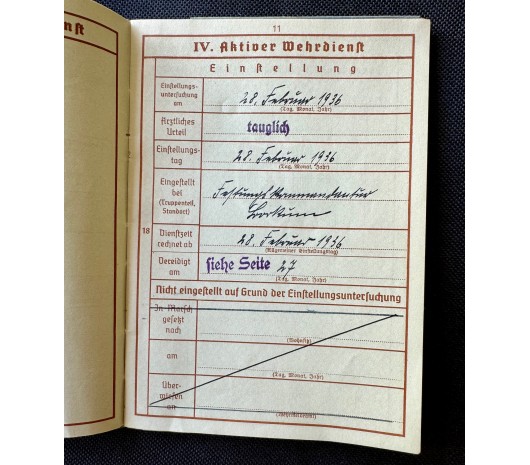 nst
11
IV. Aktiver Wehrdienst
Einstellung
Einstellungs-
untersuchung
am
28. Februar 1936
(Tag, Monat, Jahr)
Ärztliches
Urteil
tauglich
Einstellungs-
tag
28. Februar 1936
(Tag, Monat, Jahr)
Eingestellt
bei
(Truppenteil,
Standort)
Festungskommandantur
Borkum
18
Dienstzeit
rechnet ab
28. Februar 1936
(Allgemeiner Einstellungstag)
Vereidigt
am
siehe Seite 27
(Tag, Monat, Jahr)
Nicht eingestellt auf Grund der Einstellungsuntersuchung
In Marsch
gesetzt
nach
(Wohnsitz)
am
(Tag, Monat, Jahr)
Über-
wiesen
an
(Wehrmeldeamt)